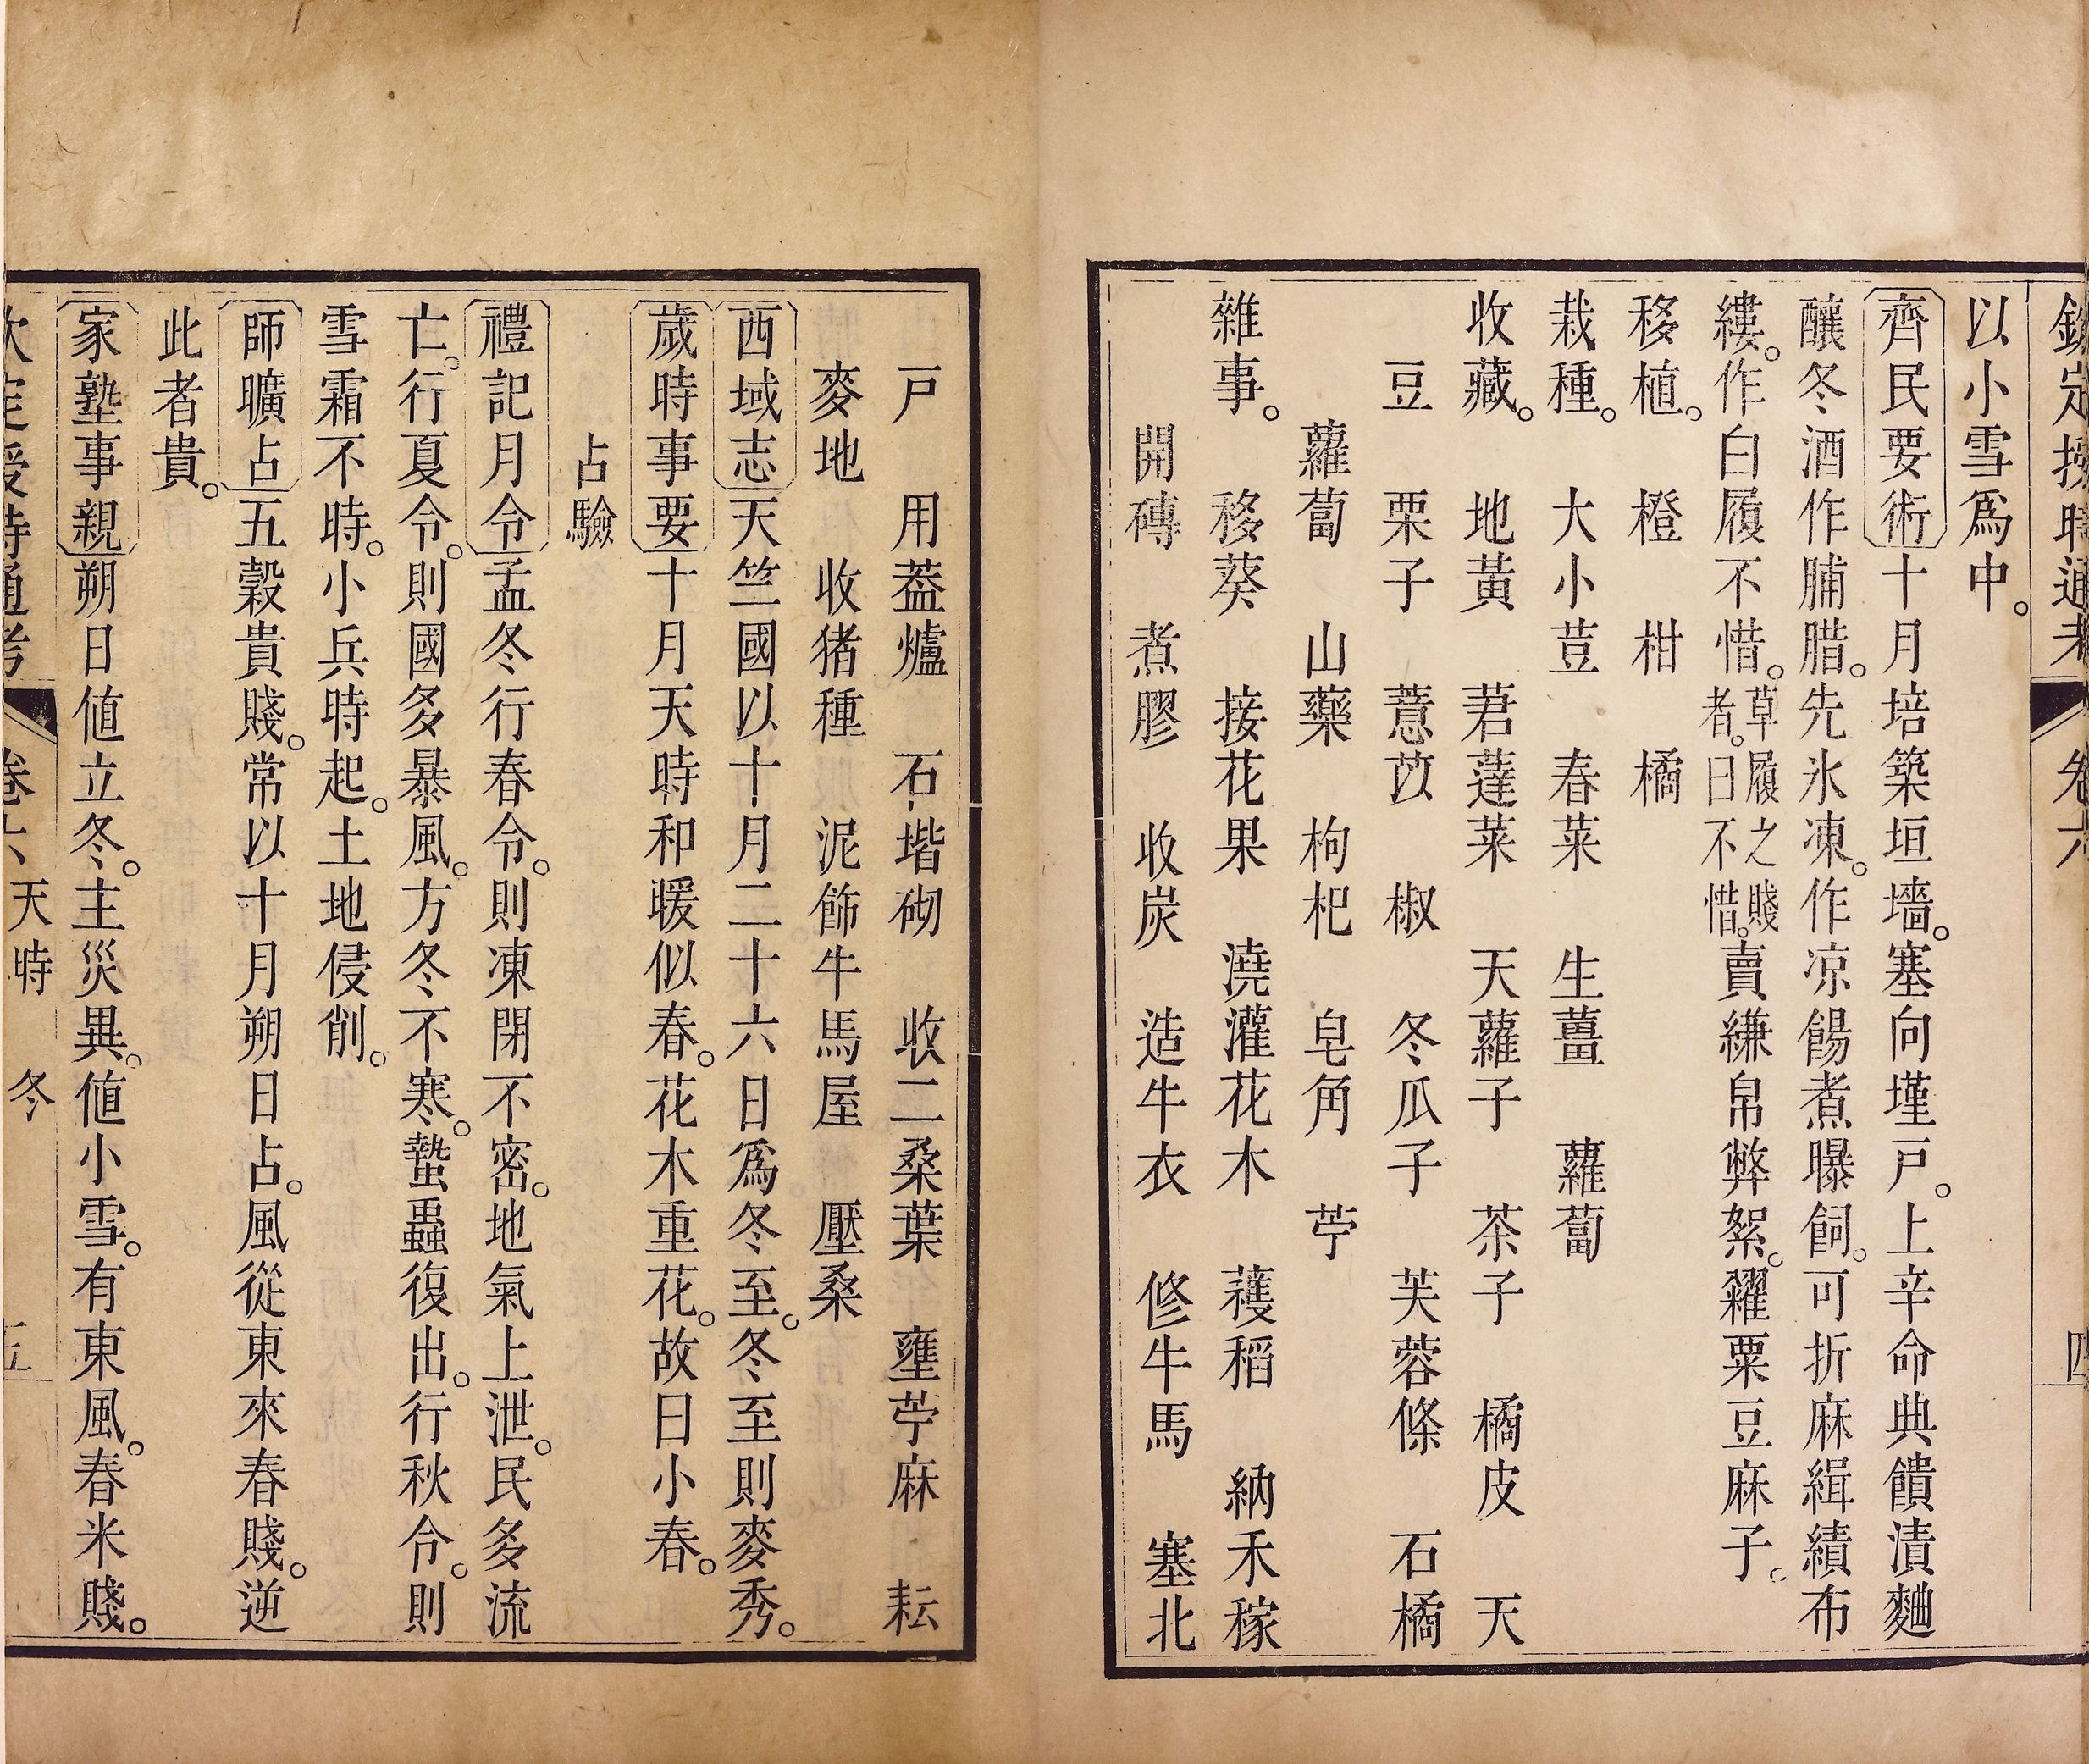 欽定授時通考 卷六 四
以小雪爲中。
齊民要術十月培築垣墻。塞向墐戸。上辛命典饋漬麯
釀冬酒作脯腊。先氷凍。作凉餳煮曝飼。可折麻緝績布
縷。作白履不惜。草履之賤者。曰不惜。賣縑帛弊絮。糴粟豆麻子。
移植。 橙 柑 橘
栽種。 大小荳 春菜 生薑 蘿蔔
收藏。 地黃 莙薘菜 天蘿子 茶子 橘皮 天
豆 栗子 薏苡 椒 冬瓜子 芙蓉條 石橘
蘿蔔 山藥 枸杞 皂角 苧
雜事。 移葵 接花果 澆灌花木 穫稻 納禾稼
開磚 煮膠 收炭 造牛衣 修牛馬 塞北
戸 用葢爐 石堦砌 收二桑葉 壅苧麻 耘
麥地 收猪種 泥飾牛馬屋 壓桑
西域志天竺國以十月二十六日爲冬至。冬至則麥秀。
歲時事要十月天時和暖似春。花木重花。故曰小春。
占驗
禮記月令孟冬行春令。則凍閉不密。地氣上泄。民多流
亡。行夏令。則國多暴風。方冬不寒。蟄蟲復出。行秋令。則
雪霜不時。小兵時起。土地侵削。
師曠占五穀貴賤。常以十月朔日占。風從東來春賤。逆
此者貴。
家塾事親朔日値立冬。主災異。値小雪。有東風。春米賤。
欽定授時通考 卷六 天時 冬 五